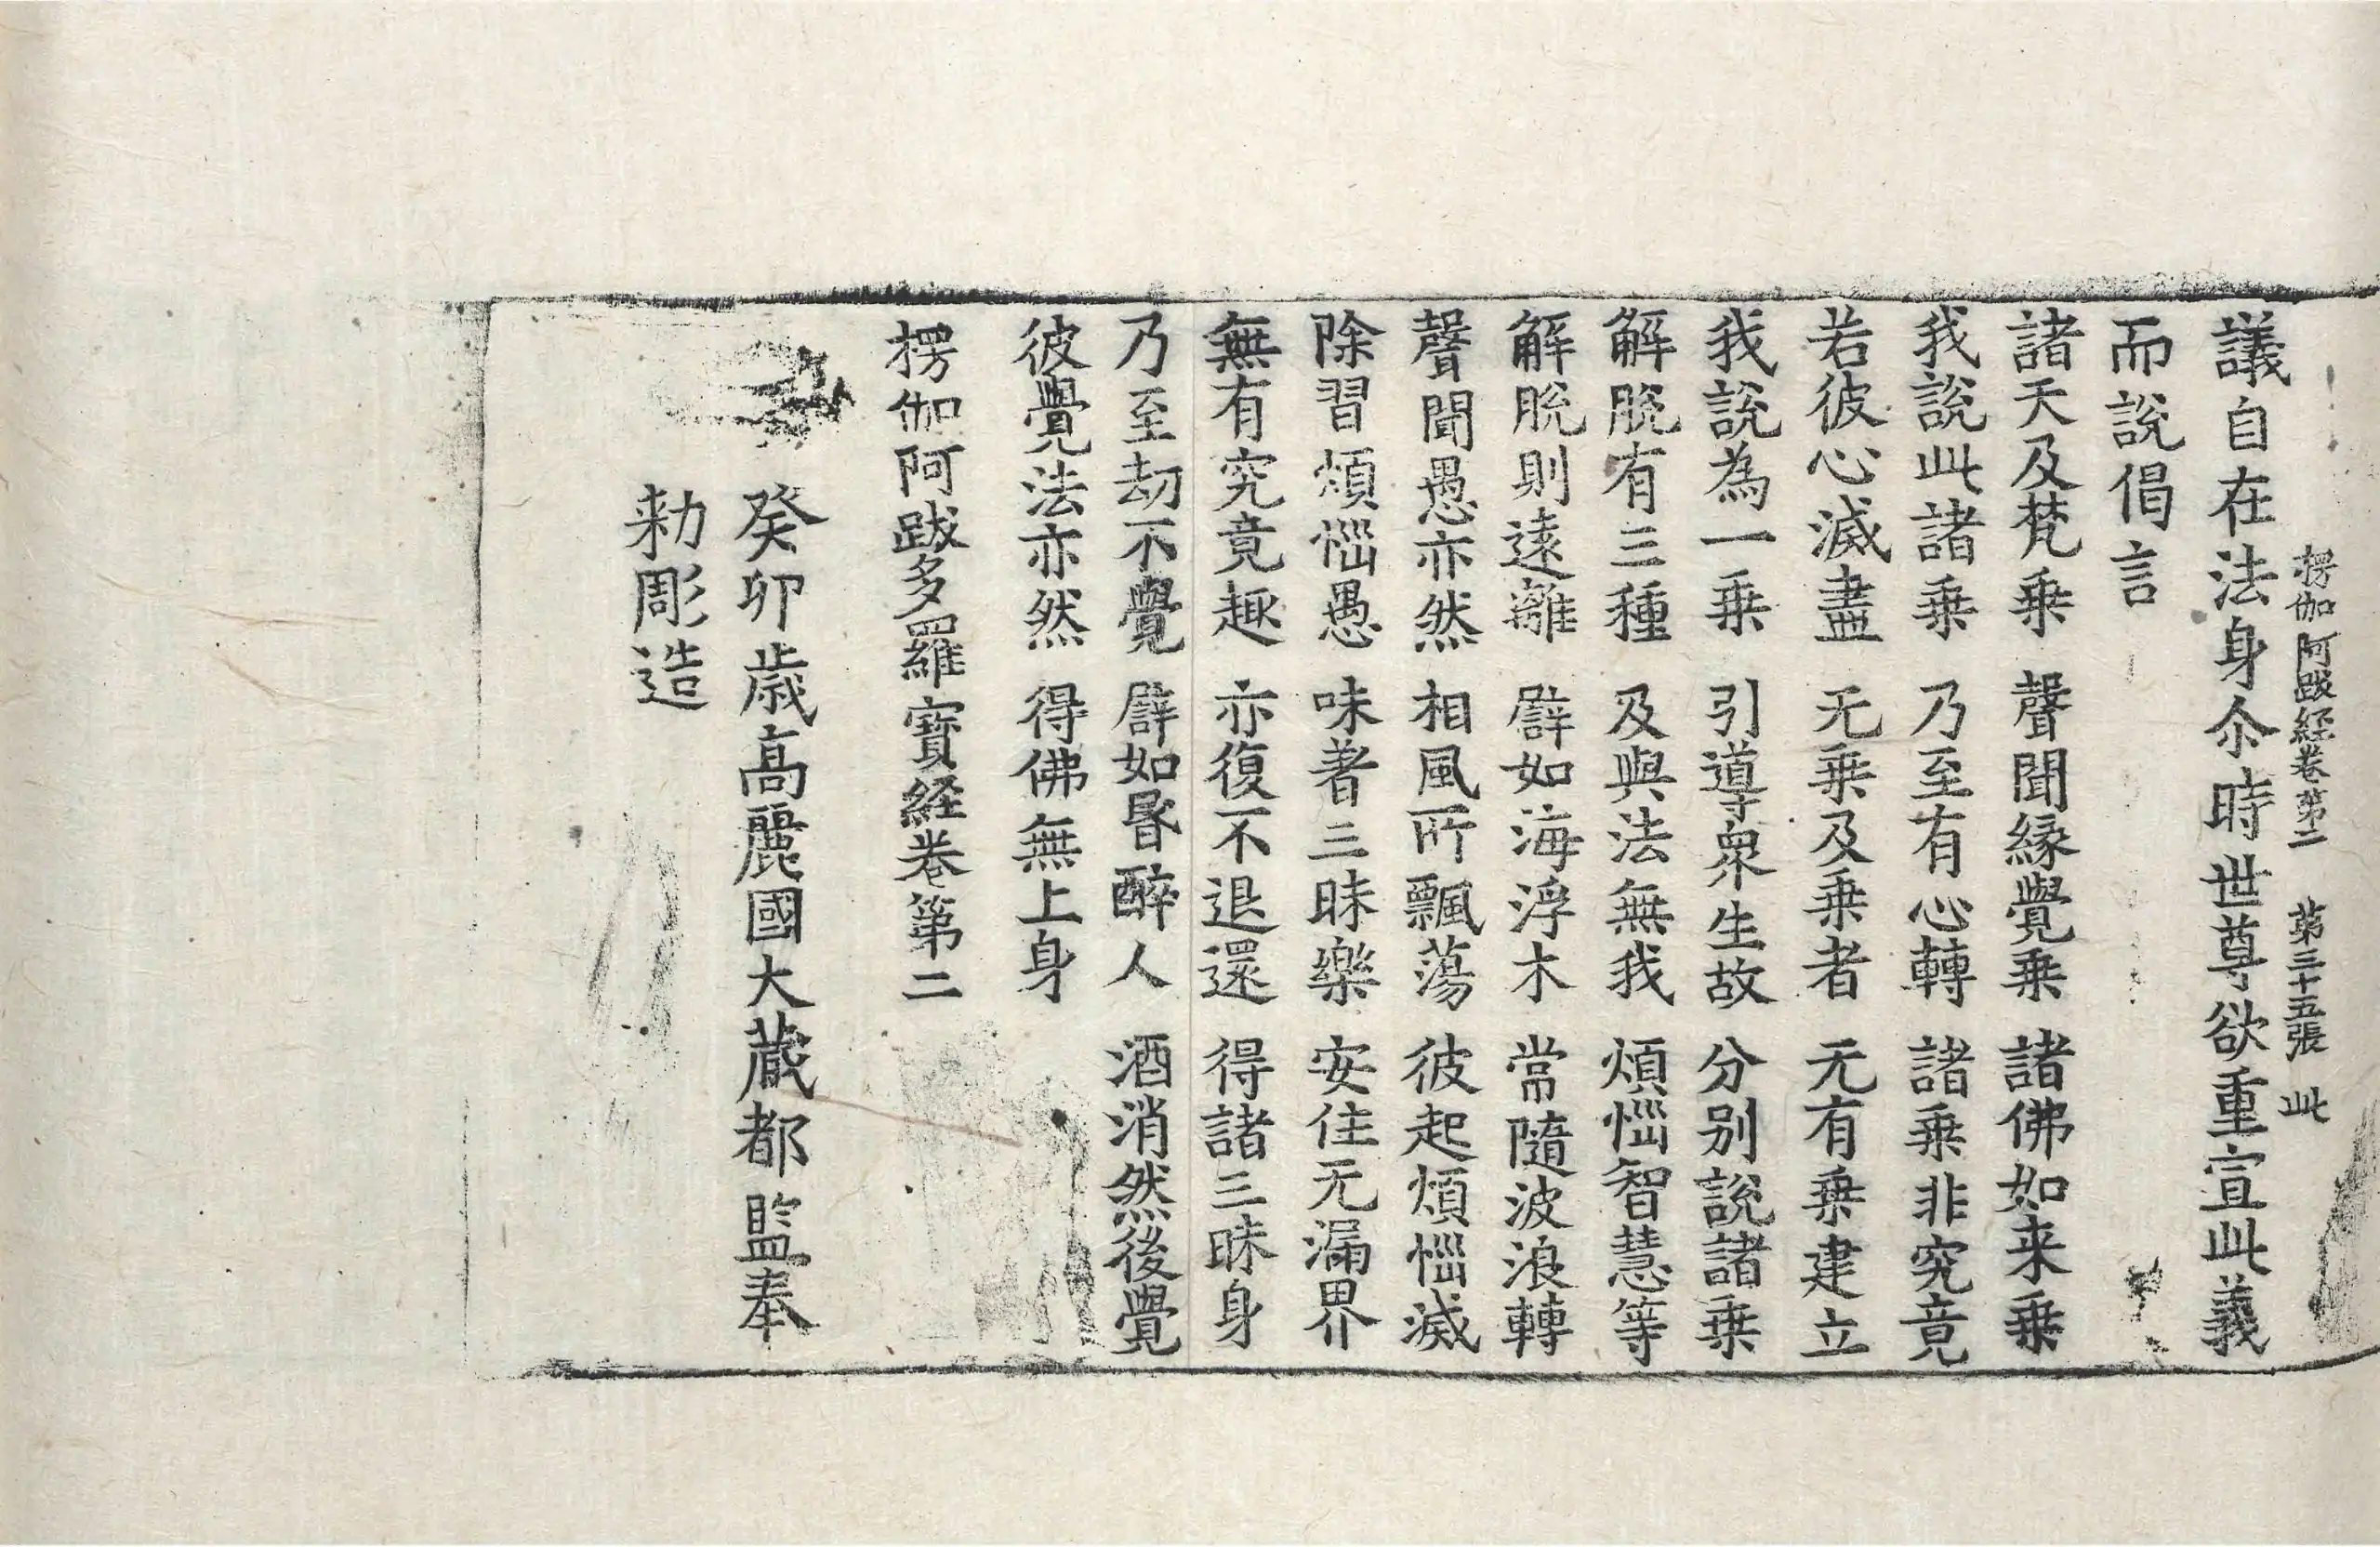 楞伽阿跋経卷第二　第三十五張　此
議自在法身尒時世尊欲重宣此義
而說偈言
諸天及梵乗　聲聞縁覺乗　諸佛如来乗
我說此諸乗　乃至有心轉　諸乗非究竟
若彼心滅盡　无乗及乗者　无有乗建立
我說為一乗　引導衆生故　分别說諸乗
解脫有三種　及與法無我　煩惱智慧等
解脫則遠離　譬如海浮木　常隨波浪轉
聲聞愚亦然　相風所飄蕩　彼起煩惱滅
除習煩惱愚　味著三昧樂　安住无漏界
無有究竟趣　亦復不退還　得諸三昧身
乃至劫不覺　譬如昬醉人　酒消然後覺
彼覺法亦然　得佛無上身
楞伽阿跋多羅寶経卷第二
癸卯歳高麗國大蔵都監奉
勑彫造